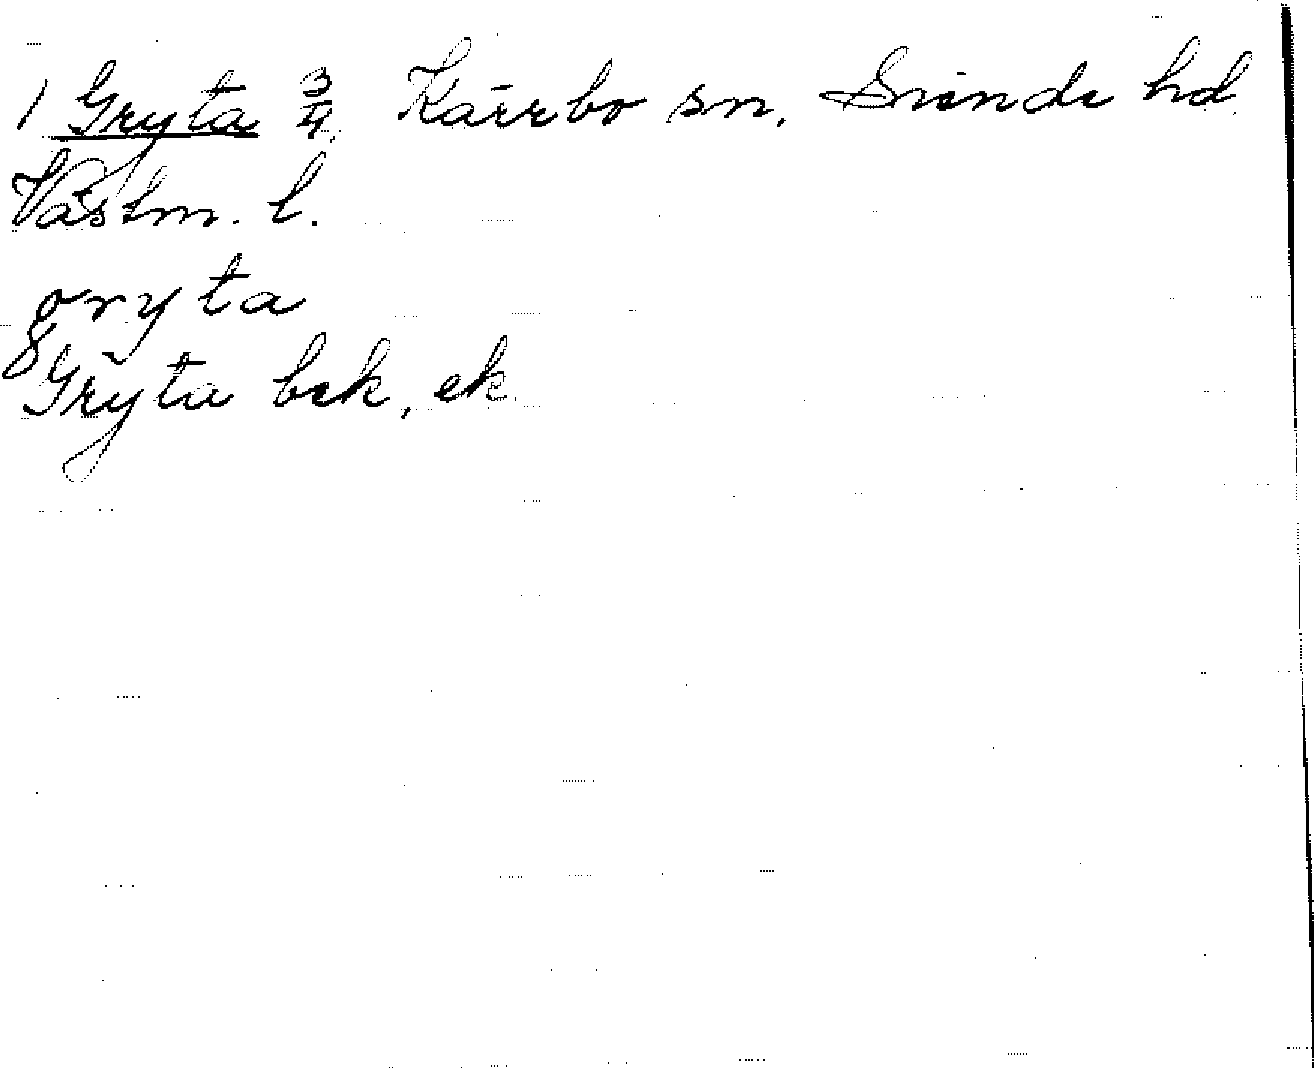 1 Gryta 3/4, Kärrbo sn, Siende hd
Västm. l.
gryta
Gryta bek, ek